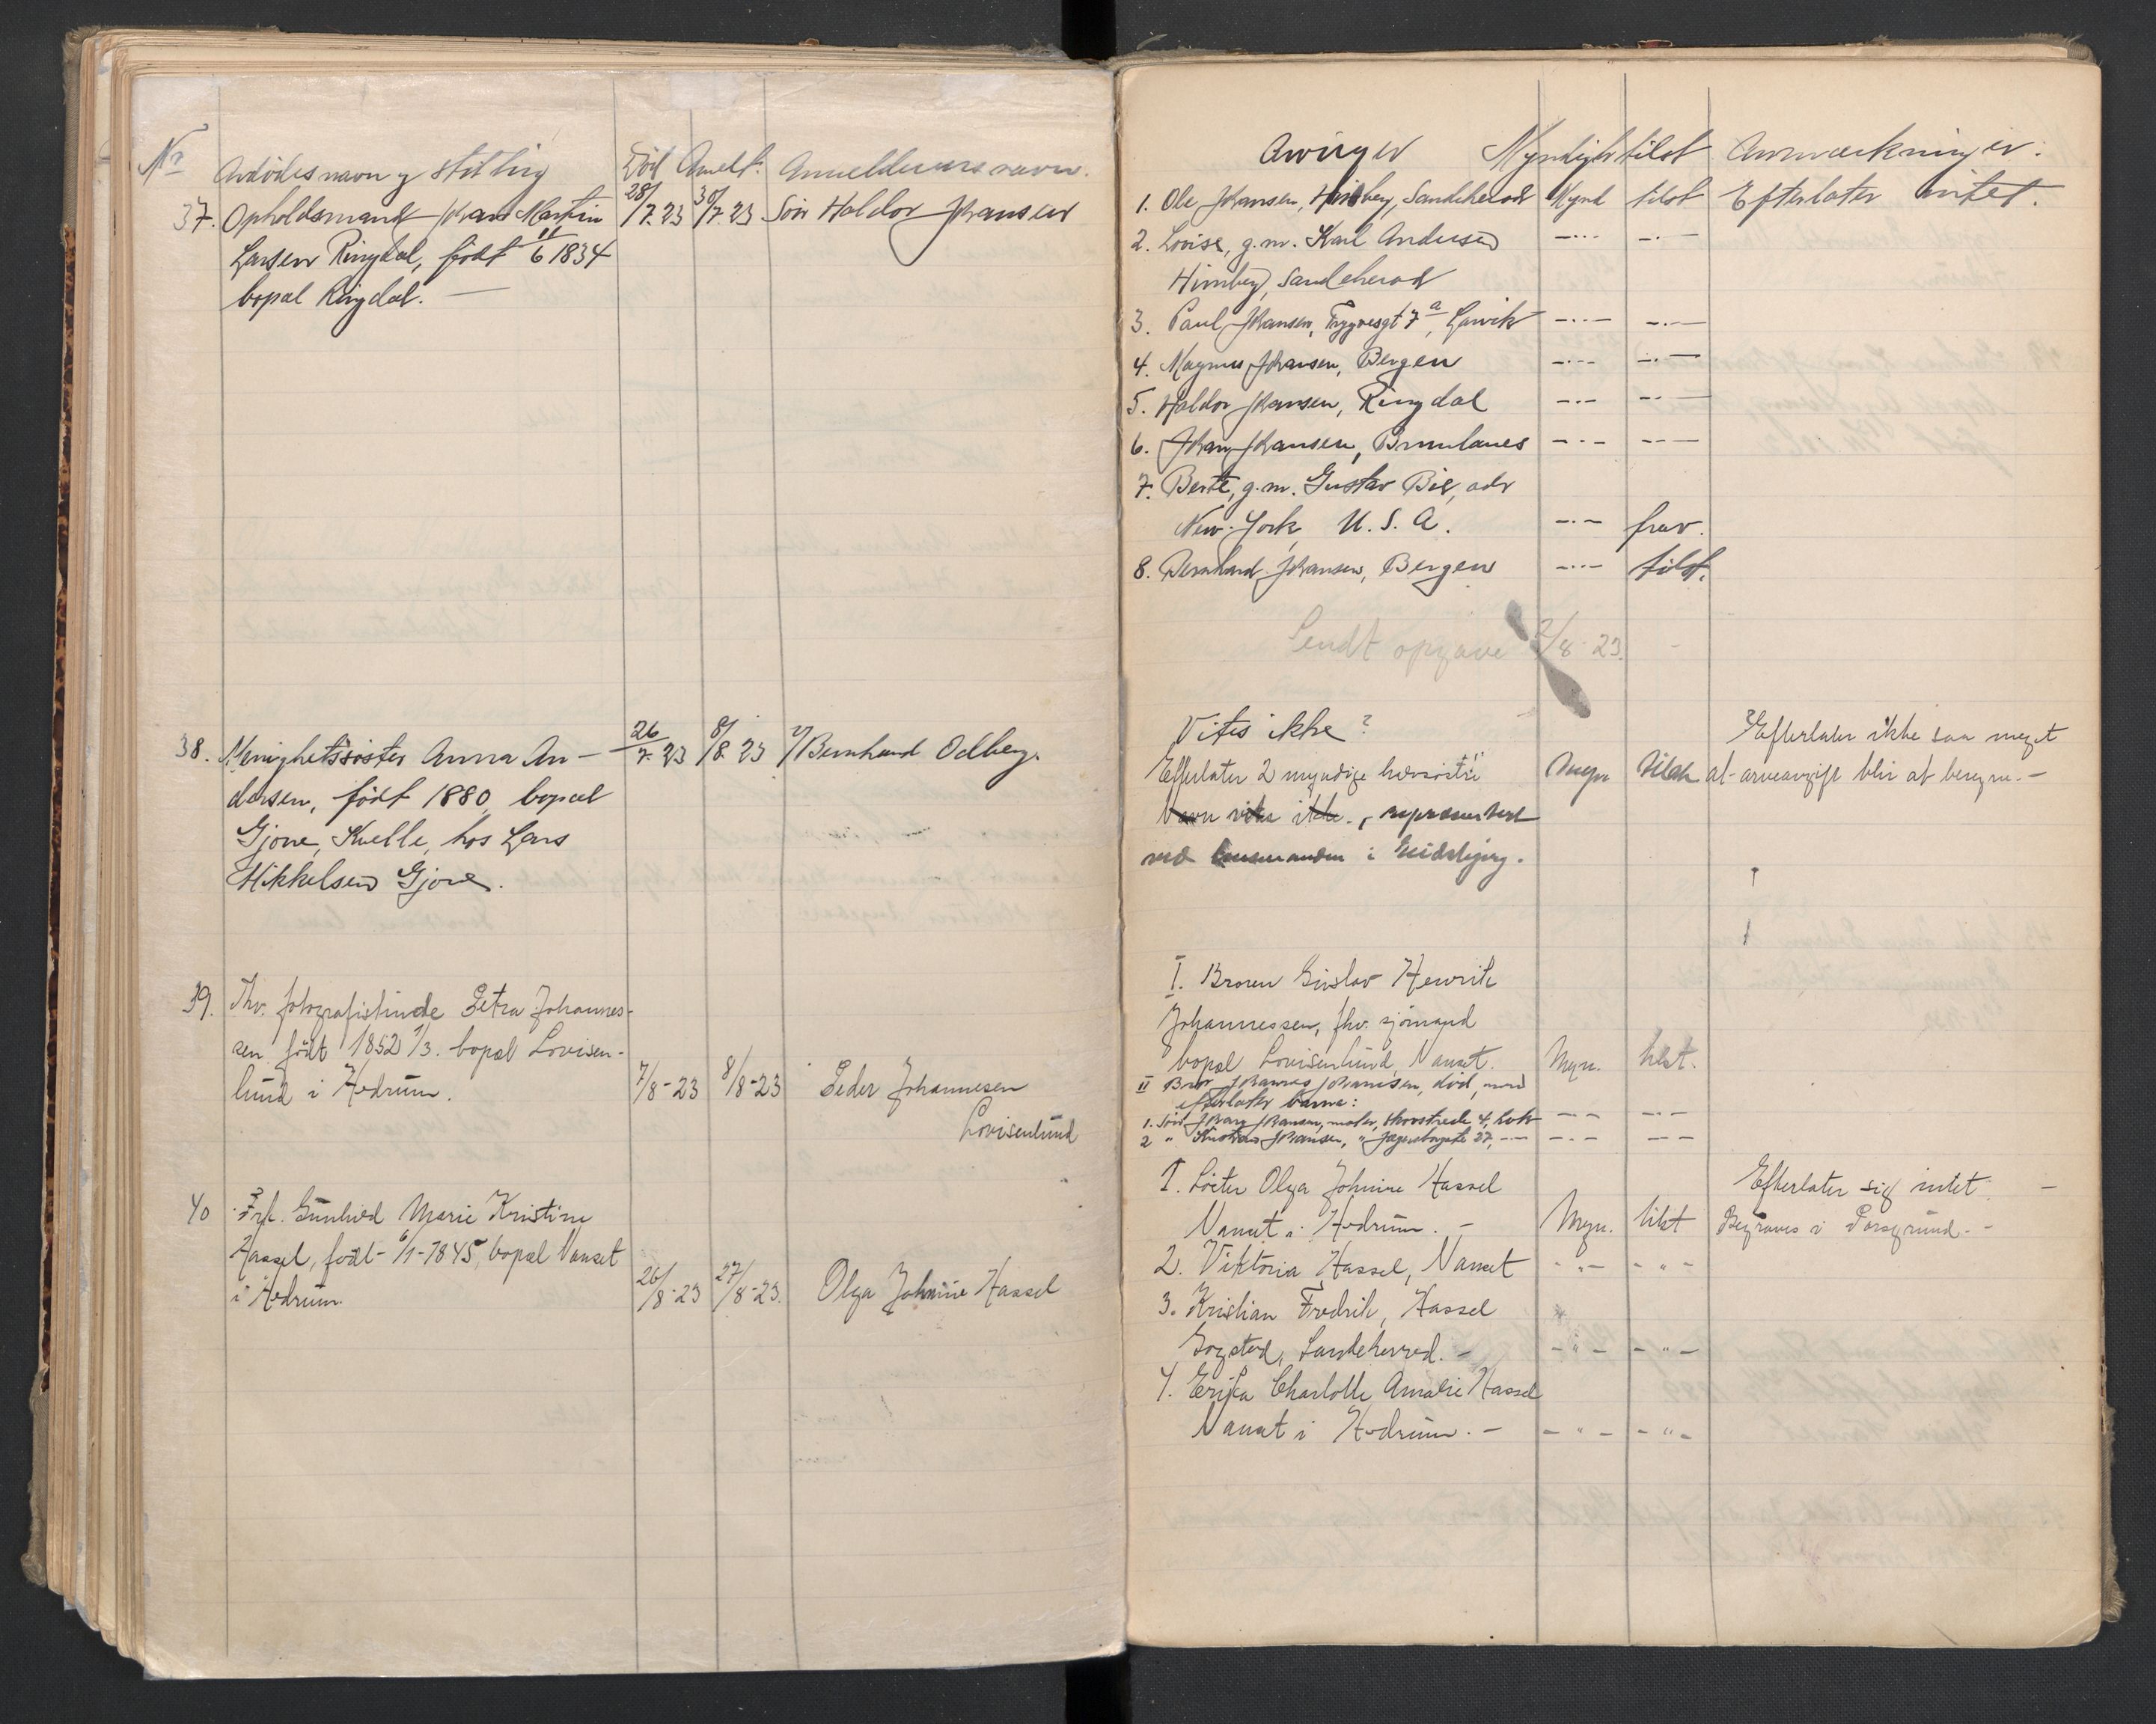 Nr Avdödes navn og stilling Död Anmelt. Anmelderens navn.
37. Opholdsmand Johan Martin 28/7.23 30/7.23 Sön Haldor Johansen
Larsen Ringdal, født 11/6 1834
bopæl Ringdal. —
38. Menighetssöster Anna An- 26/7.23 8/8.23 Bernhard Odberg.
dersen, født 1880, bopæl
Gjone, Kvelle, hos Lars
Mikkelsen Gjone.
39. Fhv. fotografistinde Petra Johannes-
sen født 1852 1/3. bopæl Lovisen-
lund i Hedrum. 7/8-23 8/8-23 Peder Johannesen
Lovisenlund
40 Frk. Gunhild Marie Kristine
Hassel, født 6/1-1845, bopæl Nanset
i Hedrum. 26/8-23 27/8-23. Olga Johnine Hassel
Arvinger Myndigh. tilst Anmærkninger.
1. Ole Johansen, Himberg, Sandeherad Mynd tilst Efterlater intet.
2. Lovise, g.m. Karl Andersen —·— —·—
Himberg, Sandeherad
3. Paul Johansen, Tryggvesgt 7a, Larvik —·— —·—
4. Magnus Johansen, Bergen —·— —·—
5. Haldor Johansen, Ringdal —·— —·—
6. Johan Johansen, Brunlanes —·— —·—
7. Berte, g.m. Gustav Bie, adr
New-York, U.S.A. —·— frav.
8. Bernhard Johansen, Bergen —·— tilst.
Sendt opgave 2/8-23.
Vites ikke ? Efterlater ikke saa meget
Efterlater 2 myndige halvsöstre Myn tilst at arveavgift blir at beregne.—
Navn vites ikke., representert
ved lensmanden i
I. Broren Gustav Henrik
Johannessen, fhv. sjömand
bopæl Lovisenlund, Nanset. Myn. tilst.
II Bror Johannes Johansen, död, men
efterlater barna:
1. Sön Johan Johansen, maler, 4, Larvik —·— —·—
2 " Kristian Johansen, " 27, —·— —·— —·—
1. Söster Olga Johnine Hassel Efterlater sig intet. —
Nanset i Hedrum. — Myn. tilst Begraves i Porsgrund. -
2. Viktoria Hassel, Nanset - " - - " -
3. Kristian Fredrik, Hassel
Gogstad, Sandeherred. - - " - - " -
4. Erika Charlotte Amalie Hassel
Nanset i Hedrum. - - " - - " -